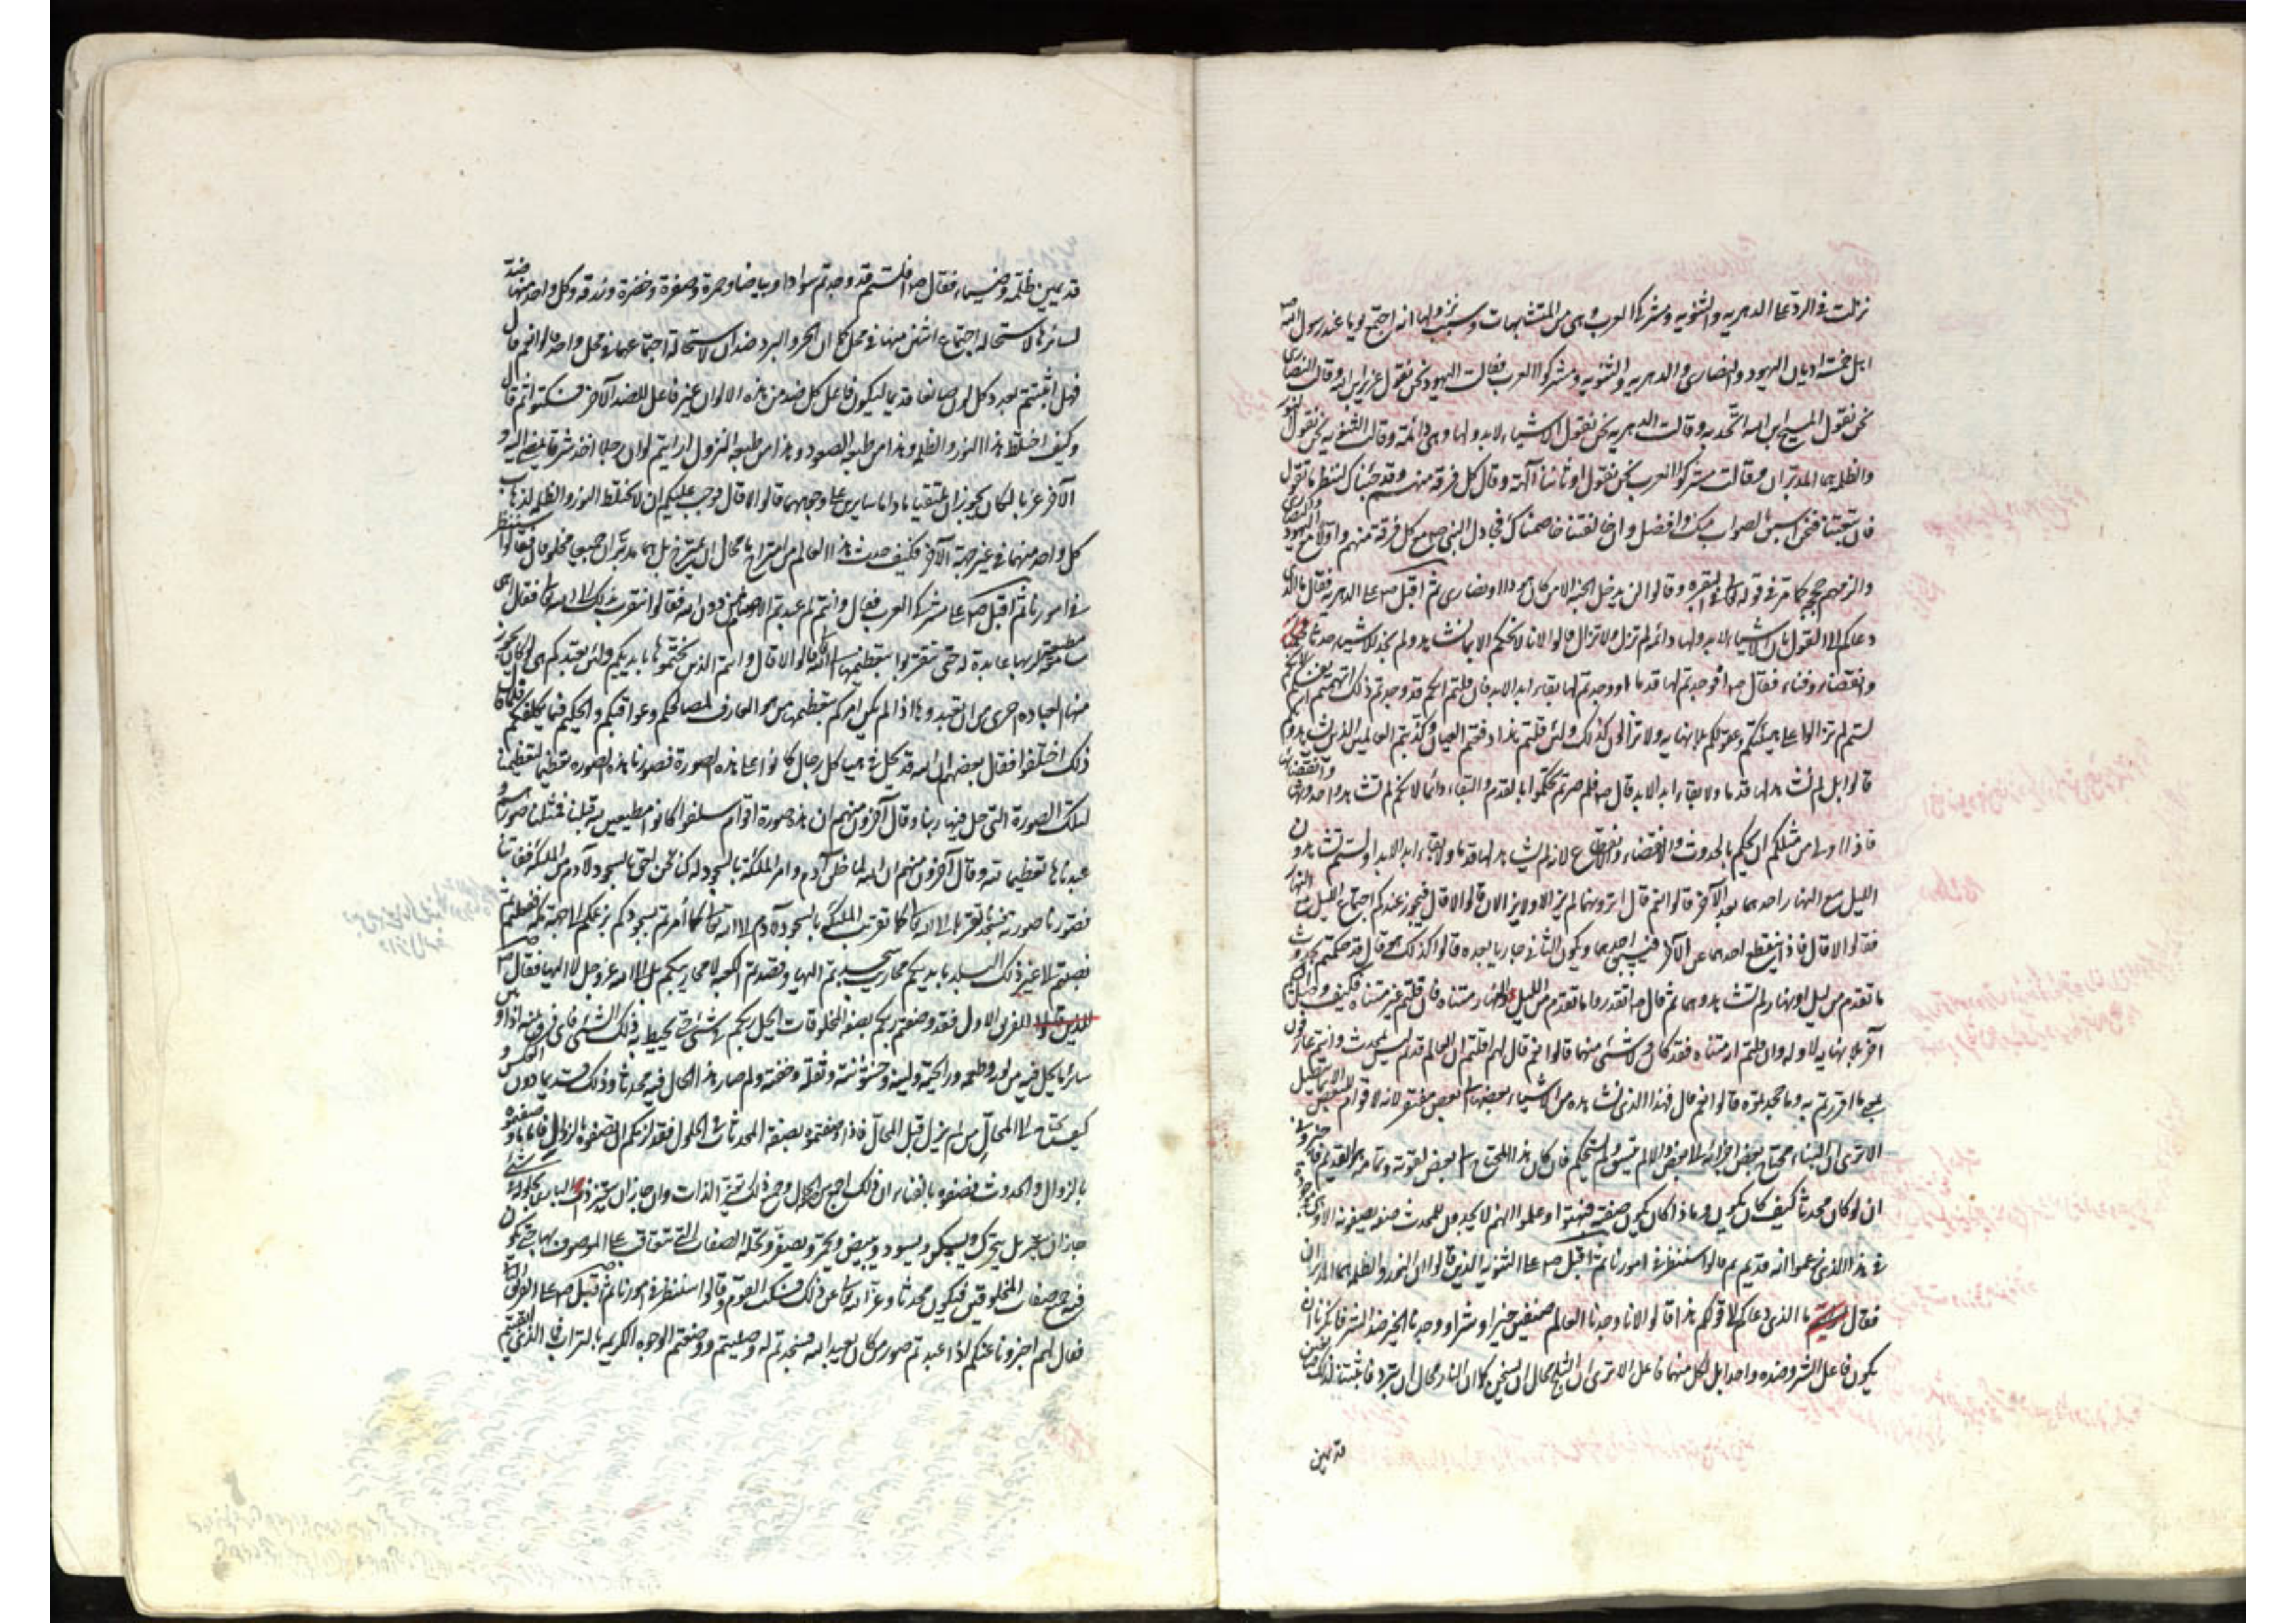 نزلت في الرد على الدهريه والثنويه ومشركي العرب وهي من المتشابهات وسبب نزولها انه اجتمع يوما عند رسول الله ص
اهل خمسة اديان اليهود والنصارى والدهريه والثنويه ومشركوا العرب فقالت اليهود نحن نقول عزير ابن الله وقالت النصارى
نحن نقول المسيح ابن الله اتحد به وقالت الدهريه نحن نقول الاشياء لا بدو لها وهي دائمة وقالت الثنويه نحن نقول النور
والظلمه هما المدبران وقالت مشركوا العرب نحن نقول اوثاننا آلهة وقال كل فرقه منهم وقد جئناك لننظر ما تقول
فان تبعتنا فنحن اسبق للصواب منك وافضل وان خالفتنا خاصمناك فجادل النبي ص مع كل فرقة منهم واولا مع اليهود والنصارى
والزمهم بحجج كما مر في قوله تعالى في البقره وقالوا لن يدخل الجنة الا من كان هودا او نصارى ثم اقبل ص على الدهريه فقال ما الذي
دعاكم الى القول بان الاشياء لا بدو لها دائمه لم تزل ولا تزال قالوا لانا لا نحكم الا بما نشاهد ولم نجد للاشياء حدثا
وانقضاء وفناء فقال ص افوجدتم لها قدما او وجدتم لها بقاء ابد الابد فان قلتم انكم قد وجدتم ذلك انهضتم لانفسكم انكم
لستم لم تزالوا على هيئتكم وعقولكم بلا نهايه ولا تزالون كذلك ولئن قلتم هذا دفعتم العيان وكذبتم العالمين الذين يشاهدونكم
قالوا بل لم نشاهد لها قدما ولا بقاء ابد الابد قال ص فلم صرتم تحكموا بالقدم والبقاء دائما لانكم لم تشاهدوا حدوثها وانقضائها
فاذا اولى من مثلكم ان يحكم بالحدوث والانقضاء والانقطاع لانه لم يشاهد لها قدما ولا بقاء ابد الابد اولستم تشاهدون
الليل مع النهار احدهما بعد الآخر قالوا نعم قال اترونهما لم يزالا ولا يزالان قالوا لا قال فيجوز عندكم اجتماع الليل مع النهار
فقالوا لا قال فاذن ينقطع احدهما عن الآخر فيسبق احدهما ويكون الثاني جاريا بعده قالوا كذلك هو قال قد حكمتم بحدوث
ما تقدم من ليل او نهار لم تشاهدوهما ثم قال ص اتقدروا ما تقدم من الليل والنهار متناه فان قلتم غير متناه فكيف وصل اليكم
آخر بلا نهايه لاوله وان قلتم انه متناه فقد كان ولا شئ منهما قالوا نعم قال لهم اقلتم ان العالم قديم ليس بمحدث وانتم عارفون
بمعنى ما اقررتم به وما جحدتموه قالوا نعم قال فهذا الذي نشاهده من الاشياء بعضها الى بعض مفتقر لانه لا قوام للبعض الا بما يتصل
الا ترى ان البناء محتاج بعض اجزائه الى بعض والا لم يتسق ولم يستحكم فان كان هذا المحتاج الى بعض لقوته وتمامه هو القديم فاخبروني
ان لو كان محدثا كيف كان يكون وماذا كان يكون صفته فبهتوا وعلموا انهم لا يجدون للمحدث صفه يصفونه الا وهي موجودة
في هذا الذي زعموا انه قديم ثم قالوا سننظر في امورنا ثم اقبل ص على الثنويه الذين قالوا ان النور والظلمه هما المدبران
فقال ما الذي دعاكم الى قولكم هذا قالوا لانا وجدنا العالم صنفين خيرا وشرا ووجدنا الخير ضد الشر فانكرنا ان
يكون فاعل الشر وضده واحدا بل لكل منهما فاعل الا ترى ان الثلج محال ان يسخن كما ان النار محال ان تبرد فاثبتنا لذلك صانعين
قديمين
قديمين ظلمه وضياء فقال ص افلستم قد وجدتم سوادا وبياضا وحمرة وصفرة وخضرة وزرقه وكل واحد منها ضد
لسائرها لاستحاله اجتماع اثنين منها في محل كما ان الحر والبرد ضدان لاستحالة اجتماعهما في محل واحد قالوا نعم قال
فهل اثبتم بعدد كل لون صانعا قديما ليكون فاعل كل ضد من هذه الالوان غير فاعل للضد الآخر فسكتوا ثم قال
وكيف اختلط هذا النور والظلمه وهذا من طبعه الصعود وهذا من طبعه النزول ارايتم لو ان رجلا اخذ شرقا يمشي اليه و
الآخر غربا لكان يجوز ان يلتقيا ما داما سايرين على وجههما قالوا لا قال فوجب عليكم ان لا يختلط النور والظلمه لذهاب
كل واحد منهما في غير جهة الآخر فكيف حدث هذا العالم من امتزاج ما محال ان يمتزج بل هما مدبران جميعا مخلوقان فقالوا سننظر
في امورنا ثم اقبل ص على مشركي العرب فقال وانتم لم عبدتم الاصنام من دون الله فقالوا نتقرب بذلك الى الله تعالى فقال اهي
سامعة مطيعة لربها عابدة له حتى تتقربوا بتعظيمها الى الله قالوا لا قال وانتم الذين نحتموها بايديكم ولئن تعبدكم هي لو كان يجوز
منها العباده احرى من ان تعبدوها اذا لم يكن امركم بتعظيمها من هو العارف لمصالحكم وعواقبكم والحكيم فيما يكلفكم فلما قال
ذلك اختلفوا فقال بعضهم ان الله قد يحل في هياكل رجال كانوا على هذه الصورة فصورنا هذه الصوره نعظمها لتعظيمنا
لتلك الصورة التي حل فيها ربنا وقال آخرون منهم ان هذه صورة اقوام سلفوا كانوا مطيعين لله قبلنا فمثلنا صورهم و
عبدناها تعظيما لله وقال آخرون منهم ان الله لما خلق آدم وامر الملئكة بالسجود له كنا نحن احق بالسجود لآدم من الملئكة ففاتنا
فصورنا صورته فنسجد تقربا الى الله تعالى كما تقربت الملئكة بالسجود لآدم الى الله تعالى وكما أمرتم بسجودكم بزعمكم الى جهة مكة ففعلتم ثم
نصبتم في غير ذلك البلد بايديكم محاريب سجدتم اليها وقصدتم الكعبه لا محاريبكم بل الى الله عز وجل لا اليها فقال ص
للفريق الاول فقد وصفتم ربكم بصفة المخلوقات ايحل ربكم في شئ حتى يحيط به ذلك الشئ فاي فرق بينه اذا وبين
سائر ما يحل فيه من لونه وطعمه ورائحته ولينه وخشونته وثقله وخفته ولم صار هذا الحال فيه محدثا وذلك قديما دون العكس و
كيف يحتاج الى المحال من لم يزل قبل المحال فاذا وصفتموه بصفة المحدثات في الحلول فقد لزمكم ان تصفوه بالزوال فاما ما وصفتموه
بالزوال والحدوث فصفوه بالفناء لان ذلك اجمع من الحلول وجميع ذلك تغير الذات وان جاز ان يتغير ذات البارى بحلوله في شئ
جاز ان يتغير بان يتحرك ويسكن ويسود ويبيض ويحمر ويصفر وتحله الصفات التي تتعاقب على الموصوف بها حتى يكون
فيه جميع صفات المخلوقين فيكون محدثا وعز الله تعالى عن ذلك فسكت القوم وقالوا سننظر في امورنا ثم اقبل ص على الفريق الثاني
فقال لهم اخبرونا عنكم اذا عبدتم صور من كان يعبد الله فسجدتم له وصليتم ووضعتم الوجوه الكريمه بالتراب فما الذي بقيتم